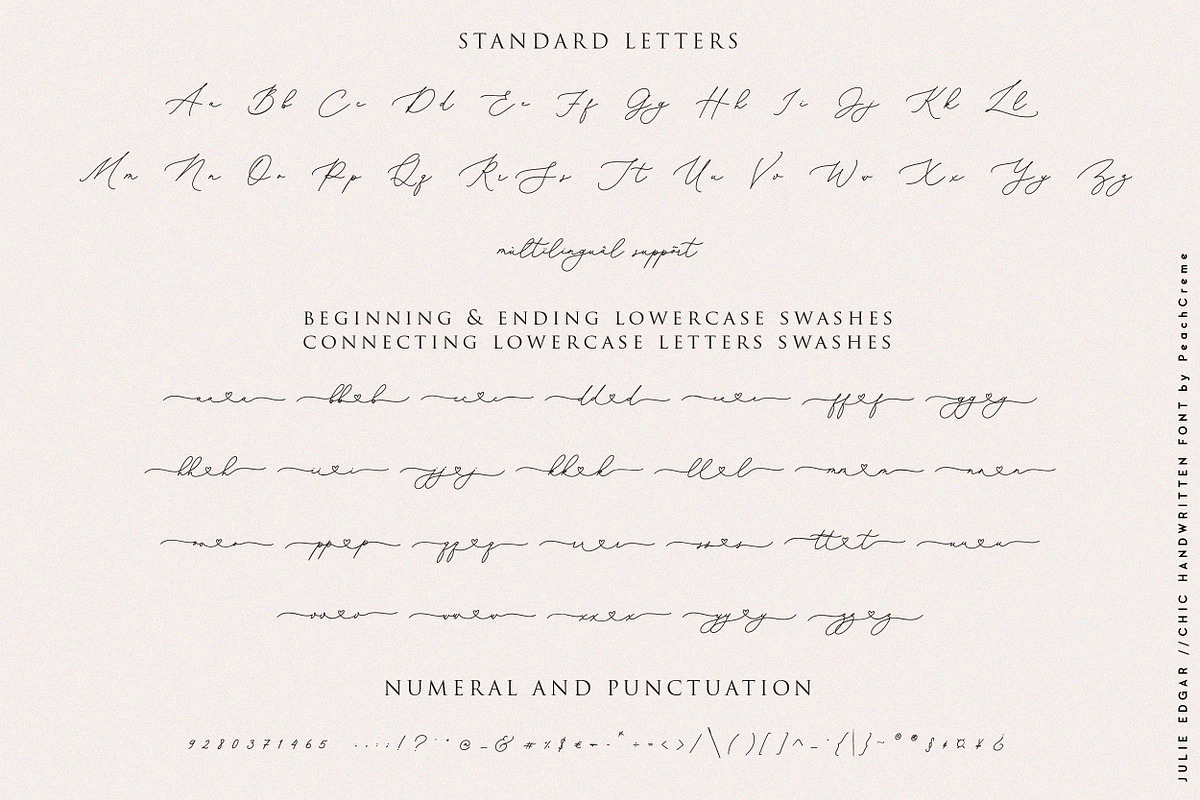 STANDARD LETTERS
Aa Bb Cc Dd Ee Ff Gg Hh Ii Jj Kk Ll
Mm Nn Oo Pp Qq Rr Ss Tt Uu Vv Ww Xx Yy Zz
múltilinguâl suppõrt
BEGINNING & ENDING LOWERCASE SWASHES
CONNECTING LOWERCASE LETTERS SWASHES
aa♡a bb♡b cc♡c dd♡d ee♡e ff♡f gg♡g
hh♡h ii♡i jj♡j kk♡k ll♡l mm♡m nn♡n
oo♡o pp♡p qq♡q rr♡r ss♡s tt♡t uu♡u
vv♡v ww♡w xx♡x yy♡y zz♡z
NUMERAL AND PUNCTUATION
9280371465 ! ? @ - & # % $ € + * ÷ = < > / \ ( ) [ ] ^ _ { | } ~ § ¤ ¥ ¿
JULIE EDGAR //CHIC HANDWRITTEN FONT by PeachCreme